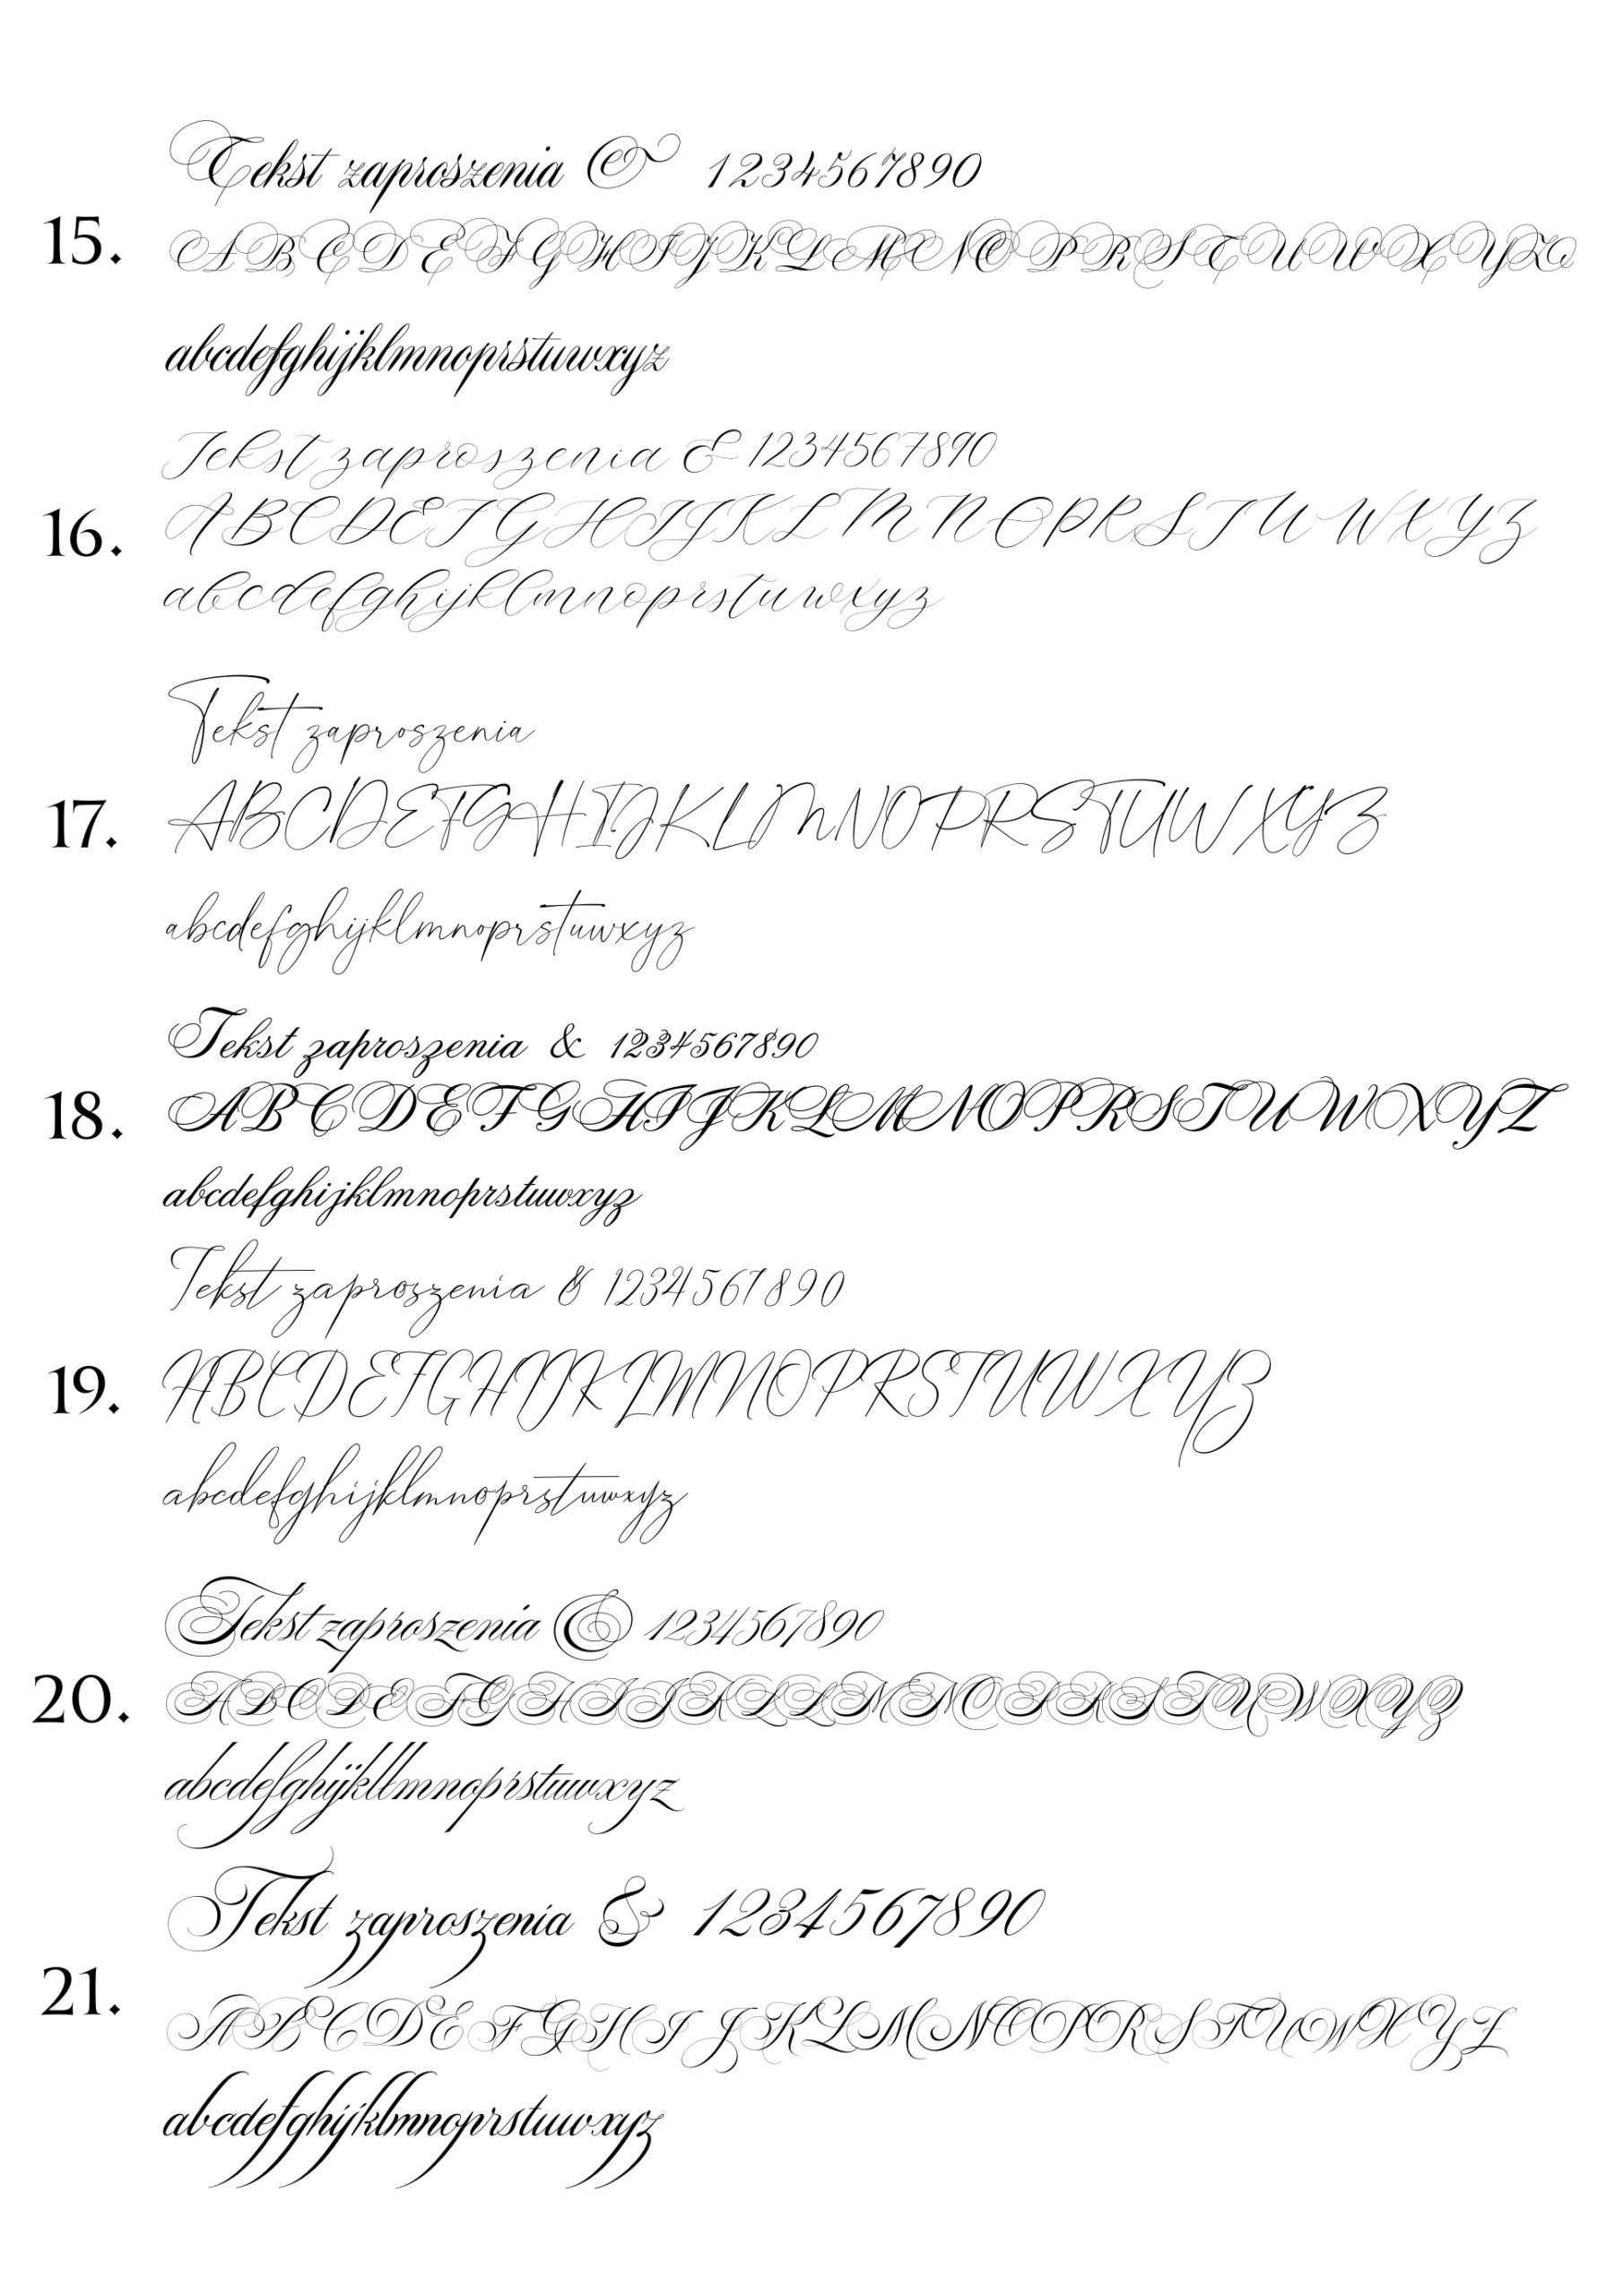 Tekst zaproszenia & 1234567890
15.
ABCDEFGHIJKLMNOPRSTUWXYZ
abcdefghijklmnoprstuwxyz
Tekst zaproszenia & 1234567890
16.
ABCDEFGHIJKLMNOPRSTUWXYZ
abcdefghijklmnoprstuwxyz
Tekst zaproszenia
17.
ABCDEFGHIJKLMNOPRSTUWXYZ
abcdefghijklmnoprstuwxyz
Tekst zaproszenia & 1234567890
18.
ABCDEFGHIJKLMNOPRSTUWXYZ
abcdefghijklmnoprstuwxyz
Tekst zaproszenia & 1234567890
19.
ABCDEFGHIJKLMNOPRSTUWXYZ
abcdefghijklmnoprstuwxyz
Tekst zaproszenia & 1234567890
20.
ABCDEFGHIJKLLMNOPRSTUWXYZ
abcdefghijkllmnoprstuwxyz
Tekst zaproszenia & 1234567890
21.
ABCDEFGHIJKLMNOPRSTUWXYZ
abcdefghijklmnoprstuwxyz